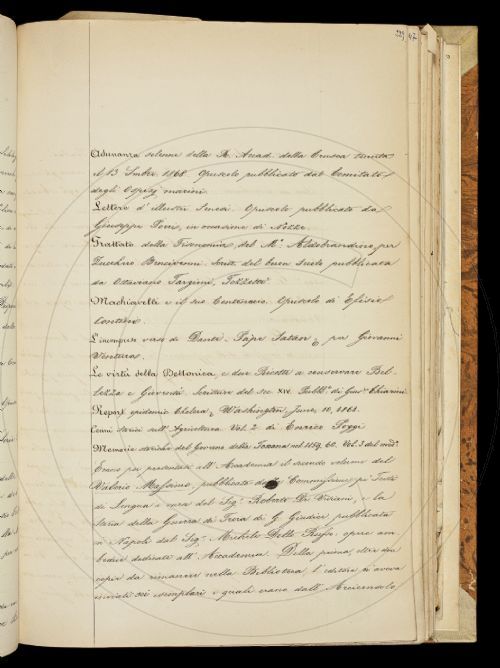 47
Adunanza solenne della R. Accad. della Crusca tenuta
il 13 1868. Opuscolo pubblicato dal Comitato
degli Ospizj marini.
Lettere d'illustri Opuscolo pubblicato da
Giuseppe in occasione di Nozze.
Trattato della Fisonomia, del M.º Aldobrandino, per
Zucchero Bencivenni. Scritt. del buon secolo pubblicata
da Ottaviano Targioni, Tozzetti
Machiavelli e il suo Centenario. Opuscolo di Efisio
Contini.
L'incompreso verso di Dante. Pape Satan &, per Giovanni
Ventura.
Le virtù della Bettonica e due Ricette a conservare Bel-
lezza e Gioventù. Scrittura del sec. XIV. Pubbl. da Gius. Chiarini
Report epidemic Cholera, Washington June, 10, 1868.
Cenni storici sull'Agricoltura Vol. 2 di Enrico Poggi
Memorie storiche del Governo della Toscana nel 1859. 60. Vol. 3 del med.
Erano poi presentati all'Accademia il secondo volume del
Valerio Massimo, pubblicato dalla Commissione pei Testi
di Lingua a cura del Sig. Roberto De Visiani, e la
Storia della Guerra di Troia di G. Giudice, pubblicata
in Napoli dal Sig. Michele Dello Russo: opere am-
bedue dedicate all'Accademia. Della prima, oltre due
copie da rimanere nella Biblioteca, l'editore n'aveva
inviati sei esemplari, i quali erano dall'Arciconsolo